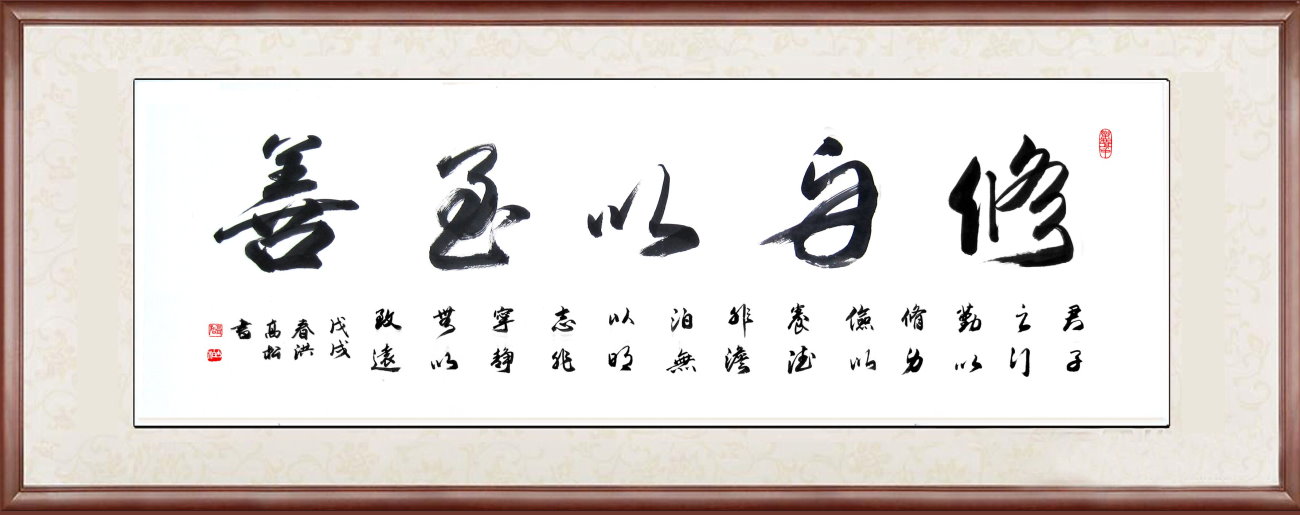 修身以至善
君子
之行
勤以
脩身
儉以
養德
非澹
泊無
以明
志非
寧靜
無以
致遠
戊戌
春洪
高松
書